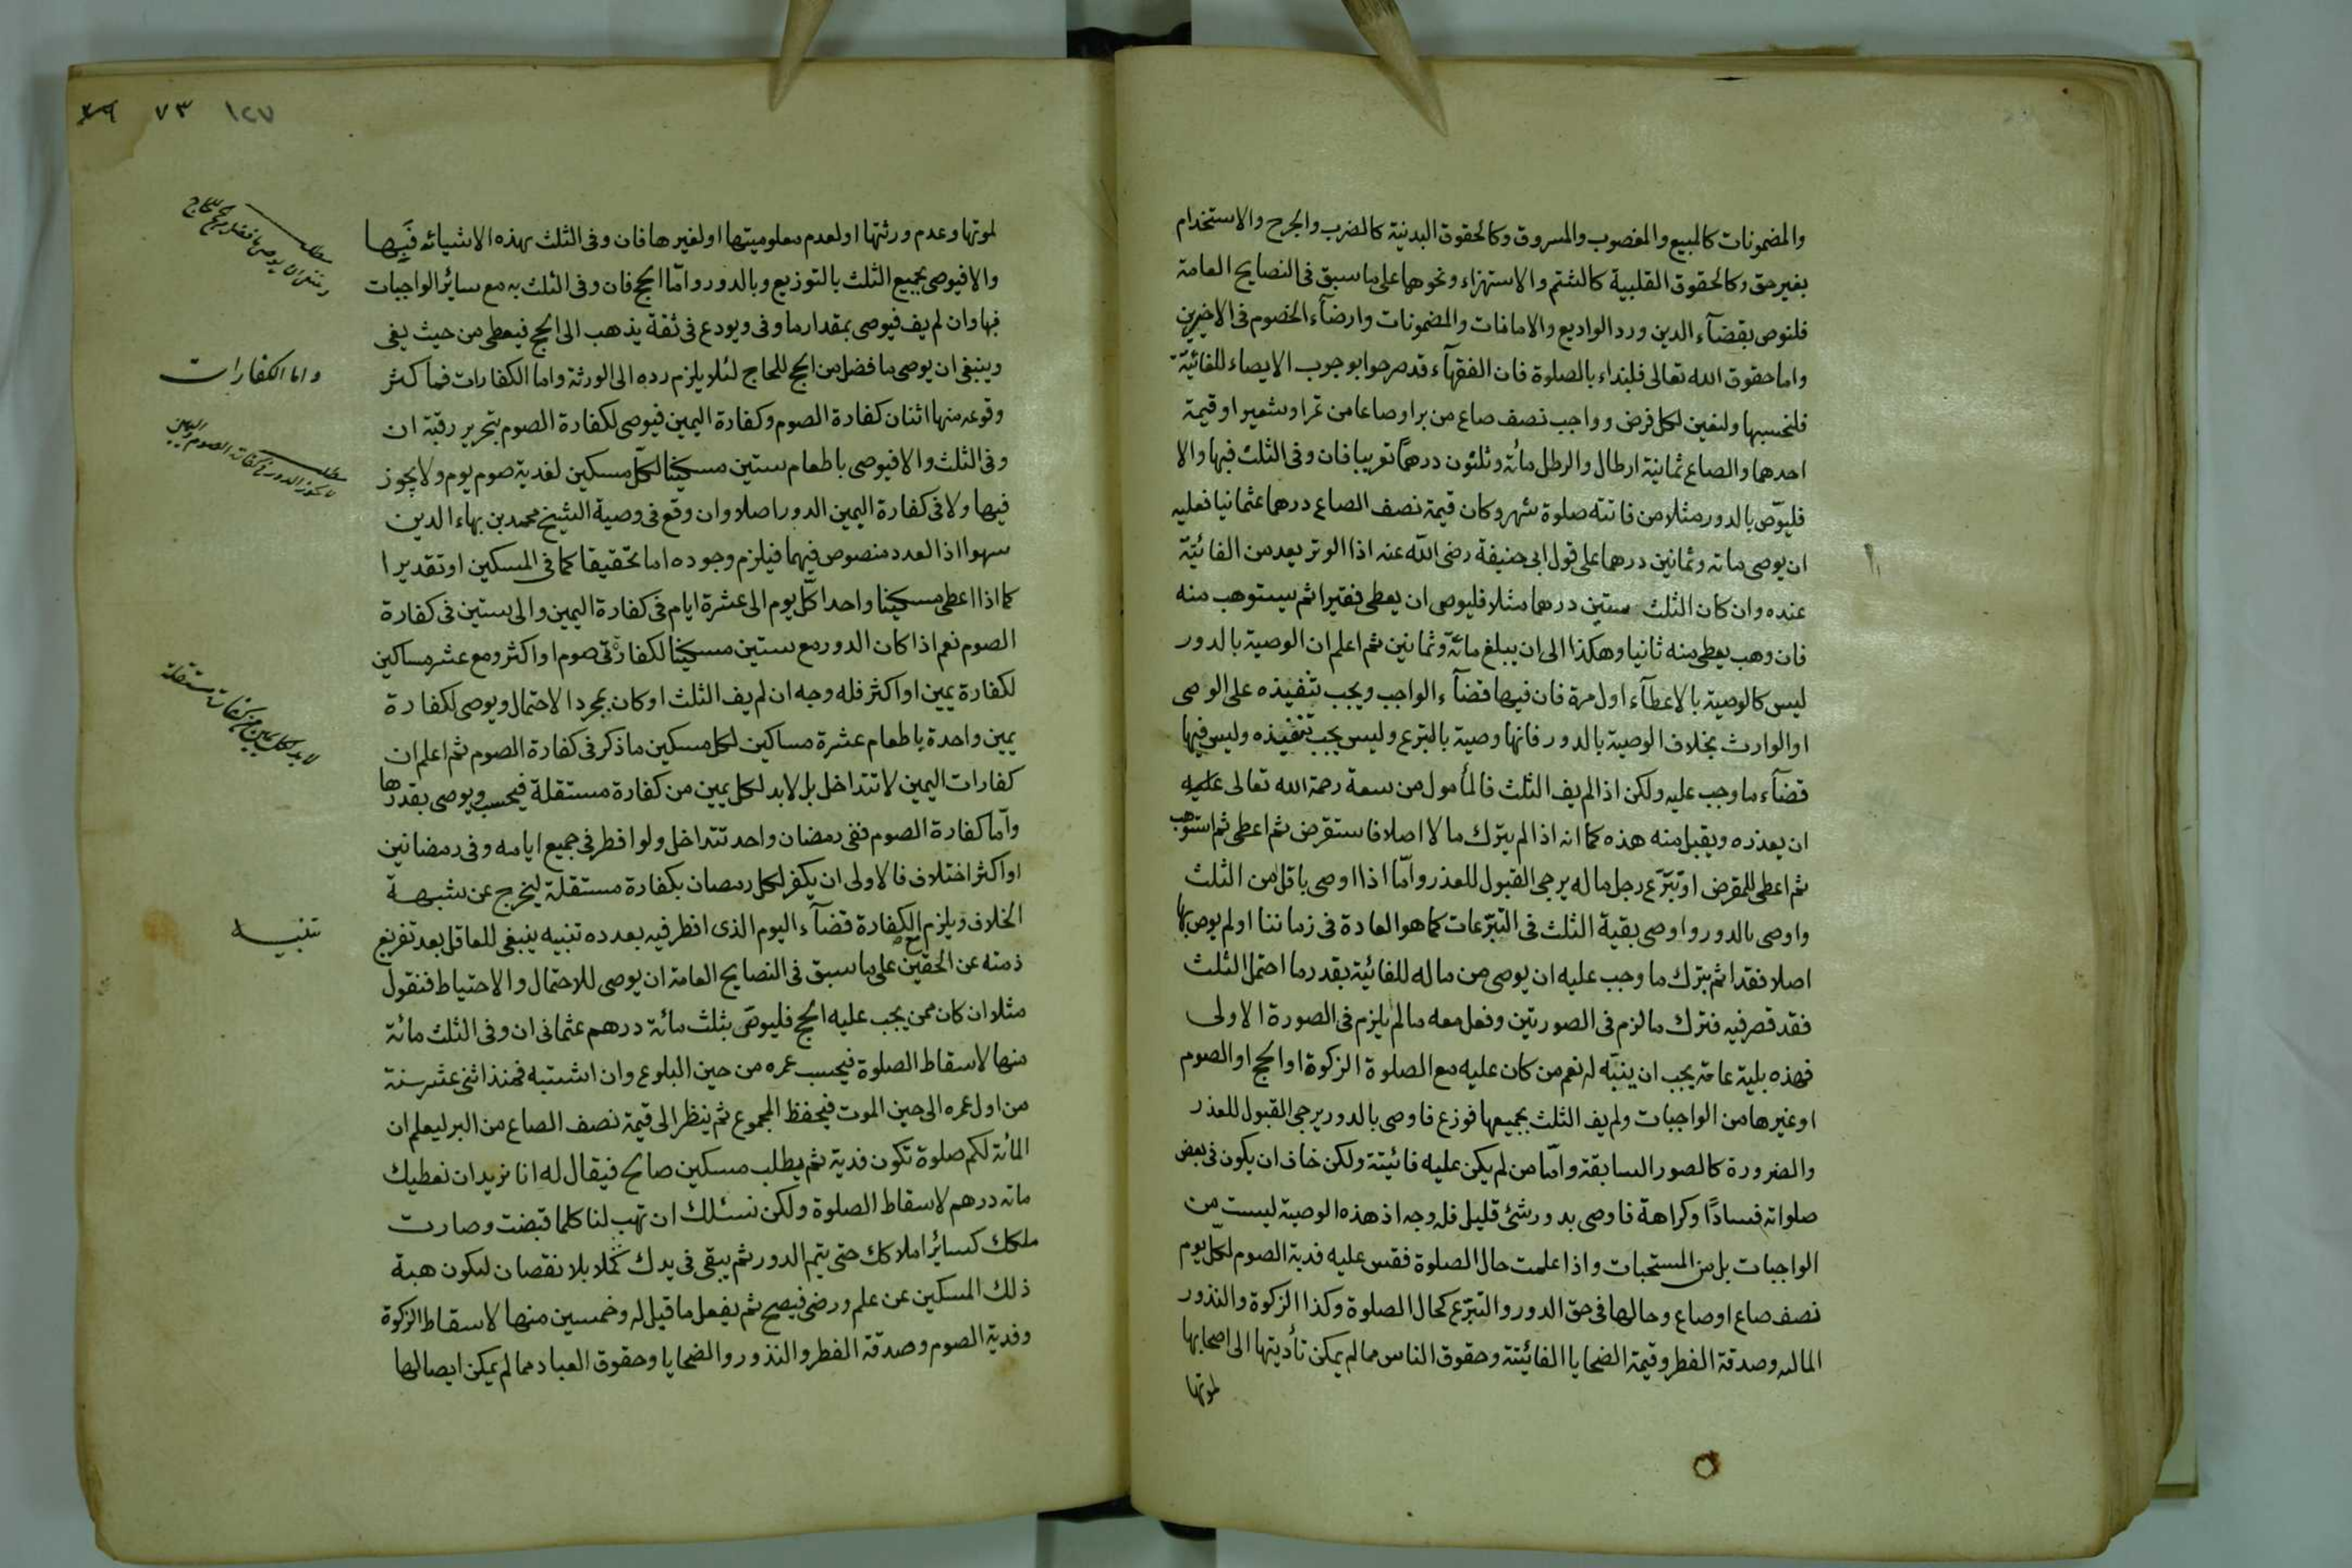 والمضمونات كالمبيع والمغصوب والمسروق وكالحقوق البدنية كالضرب والجرح والاستخدام
بغير حق وكالحقوق القلبية كالشتم والاستهزاء ونحوهما على ما سبق فى النصايح العامة
فلنوص بقضآء الدين ورد الوادیع والامانات والمضمونات وارضآء الخصوم فى الاخيرين
واما حقوق الله تعالى فلنبداء بالصلوة فان الفقهآء قد صرحوا بوجوب الايصاء للفائيتة
فلنحسبها ولنعين لكل فرض وواجب نصف صاع من بر او صاعا من تمر او شعير او قيمة
احدهما والصاع ثمانية ارطال والرطل مائة وثلثون درهمًا تقريبا فان وفى الثلث فبها والا
فليوّص بالدور مثلا من فاتته صلوة شهر وكان قيمة نصف الصاع درهما عثمانيا فعليه
ان يوصى ماته وثمانين درهما على قول ابى حنيفة رضى الله عنه اذا الوتر يعد من الفائيتة
عنده وان كان الثلث ستين درهما مثلا فليوص ان يعطى فقيرا ثم يستوهب منه
فان وهب يعطى منه ثانيا وهكذا الى ان يبلغ مائة وثمانين ثم اعلم ان الوصية بالدور
ليس كالوصية بالاعطآء اول مرة فان فيها قضآء الواجب ويجب تنفيذه على الوصى
او الوارث بخلاف الوصية بالدور فانها وصية بالتبرع وليس يجب تنفيذه وليس فيها
قضآء ما وجب عليه ولكن اذا لم يف الثلث فالمأمول من سعة رحمة الله تعالى عليه
ان يعذره ويقبل منه هذه كما انه اذا لم يترك مالا اصلا فاستقرض ثم اعطى ثم استوهب
ثم اعطى للمقرض او تبرّع رجل ماله يرجى القبول للعذر وامّا اذا اوصى باقل من الثلث
واوصى بالدور واوصى بقية الثلث فى التبرّعات كما هو العادة فى زماننا او لم يوص بها
اصلا فقد اثم بترك ما وجب عليه ان يوصى من ماله للفائيتة بقدر ما احتمل الثلث
فقد قصر فيه فترك ما لزم فى الصورتين وفعل معه ما لم يلزم فى الصورة الاولى
فهذه بلية عامة يجب ان ينبّه له نعم من كان عليه مع الصلوة الزكوة او الحج او الصوم
او غيرها من الواجبات ولم يف الثلث بجميعها فوزع فاوصى بالدور يرجى القبول للعذر
والضرورة كالصور السابقة وامّا من لم يكن عليه فائيتة ولكن خاف ان يكون فى بعض
صلواته فسادًا وكراهة فاوصى بدور شئ قليل فله وجه اذ هذه الوصية ليست من
الواجبات بل من المستحبات واذا علمت حال الصلوة فقس عليه فدية الصوم لكل يوم
نصف صاع او صاع وحالها فى حق الدور والتبرّع كحال الصلوة وكذا الزكوة والنذور
الماليه وصدقة الفطر وقيمة الضحايا الفائيتة وحقوق الناس مما لم يمكن تأديتها الى اصحابها
لموتها
١٢٧ ٧٣ ٧٩
لموتها وعدم ورثتها او لعدم معلوميتها او لغيرها فان وفى الثلث بهذه الاشيائه فَبِها
والا فيوصى بجميع الثلث بالتوزيع وبالدور وامّا الحج فان وفى الثلث به مع سائر الواجبات
فبها وان لم يف فيوصى بمقدار ما وفى ويودع فى ثقة يذهب الى الحج فيعطى من حيث يفى
وينبغى ان يوصى ما فضل من الحج للحاج لئلا يلزم رده الى الورثة واما الكفارات فما كثر
وقوعه منها اثنان كفارة الصوم وكفارة اليمين فيوصى لكفارة الصوم بتحرير رقبة ان
وفى الثلث والا فيوصى باطعام ستين مسكينا لكل مسكين لفدية صوم يوم ولا يجوز
فيها ولا فى كفارة اليمين الدور اصلا وان وقع فى وصية الشيخ محمد بن بهاء الدين
سهوا اذا العدد منصوص فيهما فيلزم وجوده اما تحقيقا كما فى المسكين او تقديرا
كما اذا اعطى مسكينا واحدا كل يوم الى عشرة ايام فى كفارة اليمين والى ستين فى كفارة
الصوم نعم اذا كان الدور مع ستين مسكينا لكفارتى صوم او اكثر ومع عشر مساكين
لكفارة يمين او اكثر فله وجه ان لم يف الثلث او كان بمجرد الاحتمال ويوصى لكفارة
يمين واحدة باطعام عشرة مساكين لكل مسكين ما ذكر فى كفارة الصوم ثم اعلم ان
كفارات اليمين لا تتداخل بل لا بد لكل يمين من كفارة مستقلة فيحسب ويوصى بقدرها
وامّا كفارة الصوم ففى رمضان واحد تتداخل ولو افطر فى جميع ايامه وفى رمضانين
او اكثر اختلاف فالاولى ان يكفر لكل رمضان بكفارة مستقلة ليخرج عن شبهة
الخلاف ويلزم مع الكفارة قضآء اليوم الذى افطر فيه بعدده تنبيه ينبغى للعاقل بعد تفريغ
ذمته عن الحقين على ما سبق فى النصايح العامة ان يوصى للاحتمال والاحتياط فنقول
مثلا ان كان ممن يجب عليه الحج فليوصّ بثلث مائة درهم عثمانى ان وفى الثلث مائة
منها لاسقاط الصلوة فيحسب عمره من حين البلوغ وان اشتبه فمنذ اثنى عشر سنة
من اول عمره الى حين الموت فيحفظ المجموع ثم ينظر الى قيمة نصف الصاع من البر ليعلم ان
المائة لكم صلوة تكون فدية ثم يطلب مسكين صالح فيقال له انا نريد ان نعطيك
ماته درهم لاسقاط الصلوة ولكن نسئلك ان تهب لنا كلما قبضت وصارت
ملكك كسائر املاكك حتى يتم الدور ثم يبقى فى يدك كملا بلا نقصان ليكون هبة
ذلك المسكين عن علم ورضى فيصح ثم يفعل ما قيل له وخمسين منها لاسقاط الزكوة
وفدية الصوم وصدقة الفطر والنذور والضحايا وحقوق العباد مما لم يمكن ايصالها
واما الكفارات
مطلب لا يجوز الدور فى كفارة الصوم واليمين
لا بد لكل يمين من كفارة مستقلة
تنبيه